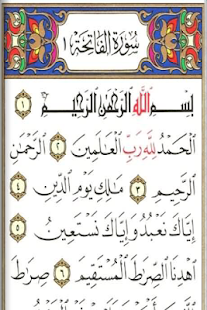 سُورَةُ الْفَاتِحَةِ ١
بِسْمِ اللَّهِ الرَّحْمَٰنِ الرَّحِيمِ ١
الْحَمْدُ لِلَّهِ رَبِّ الْعَالَمِينَ ٢ الرَّحْمَٰنِ
الرَّحِيمِ ٣ مَالِكِ يَوْمِ الدِّينِ ٤
إِيَّاكَ نَعْبُدُ وَإِيَّاكَ نَسْتَعِينُ ٥
اهْدِنَا الصِّرَاطَ الْمُسْتَقِيمَ ٦ صِرَاطَ